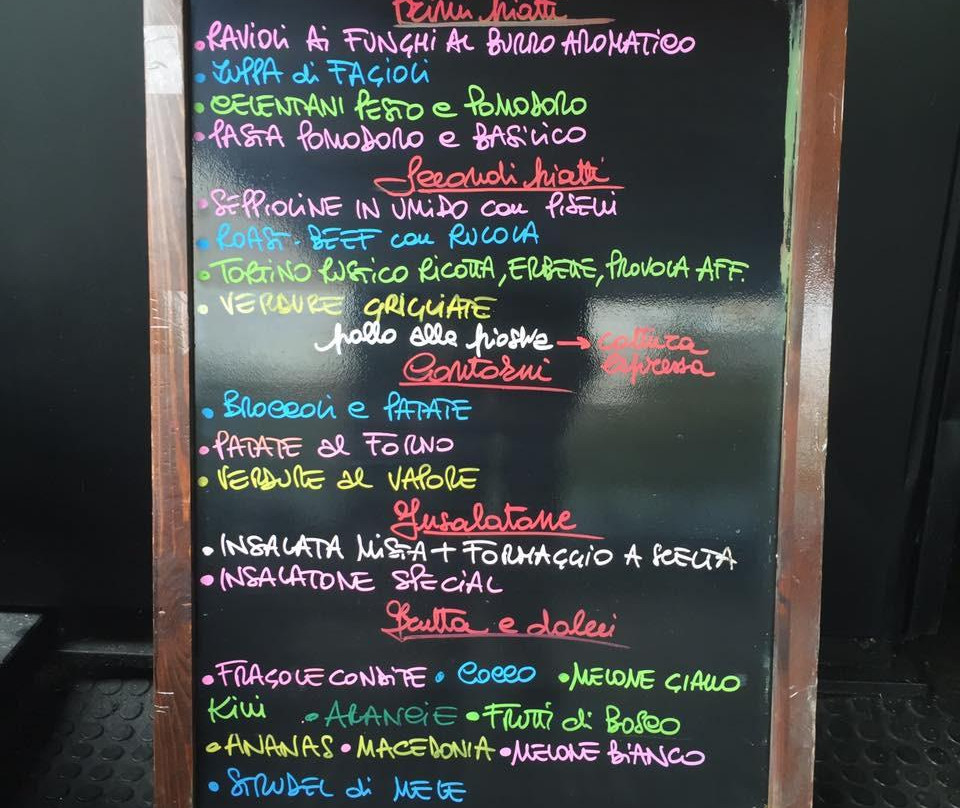 Primi piatti
•RAVIOLI Ai FUNGHI AL BURRO AROMATICO
•ZUPPA di FAGIOLI
•CELENTANI PESTO e POMODORO
•PASTA POMODORO e BASILICO
Secondi piatti
•SEPPIOLINE IN UMIDO con PISELLI
•ROAST-BEEF con RUCOLA
•TORTINO RUSTICO RICOTTA, ERBETTE, PROVOLA AFF.
•VERDURE GRIGLIATE
pollo alla piastra → cottura
espressa
Contorni
•BROCCOLI e PATATE
•PATATE al FORNO
•VERDURE al VAPORE
Insalatone
•INSALATA MISTA + FORMAGGIO A SCELTA
•INSALATONE SPECIAL
Frutta e dolci
•FRAGOLE CONDITE •COCCO •MELONE GIALLO
Kiwi •ARANCIE •FRUTTI di BOSCO
•ANANAS •MACEDONIA •MELONE BIANCO
•STRUDEL di MELE